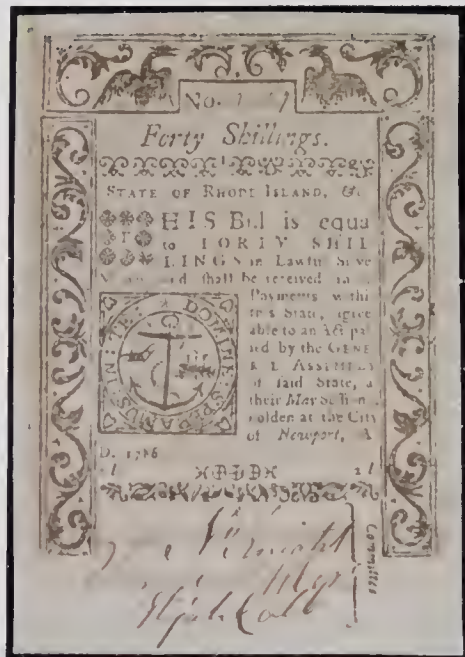 No.
Forty Shillings.
STATE OF RHODE ISLAND, &
THIS Bill is equa
to FORTY SHIL
LINGS in Lawful Silve
and shall be received in
Payments withi
this State, agree
able to an Act pas
sed by the GENE
RAL ASSEMBLY
of said State, a
their May Session
holden at the City
of Newport, A
D. 1786
IN TE DOMINE SPERAMUS
Committee